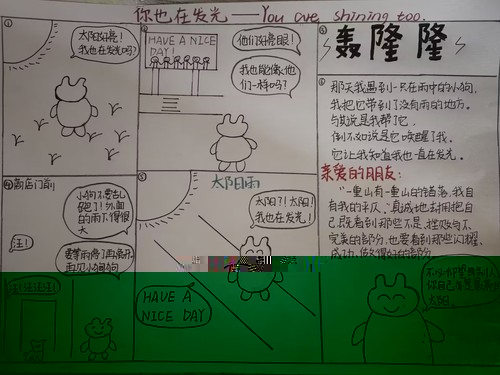 你也在发光——You are shining too.
①
太阳好亮!
我也在发光吗?
②
HAVE A NICE
DAY!
他们好亮眼!
我也能像他
们一样吗?
三
轰隆隆
④商店门前
小狗不要乱
跑了!外面
的雨下得很
大
汪!
要等雨停了再离开,
再见小狗狗
汪汪汪!
⑤
太阳雨
太阳?!太阳!
我也在发光!
HAVE A
NICE DAY
那天我遇到一只在雨中的小狗,
我把它带到了没有雨的地方。
与其说是我帮了它,
倒不如说是它唤醒了我,
它让我知道我也一直在发光。
亲爱的朋友:
"一重山有一重山的错落,我自
有我的平仄。"真诚地去拥抱自
己,既看到那些不足、挫败与不
完美的部分,也要看到那些闪耀、
成功、做得好的部分